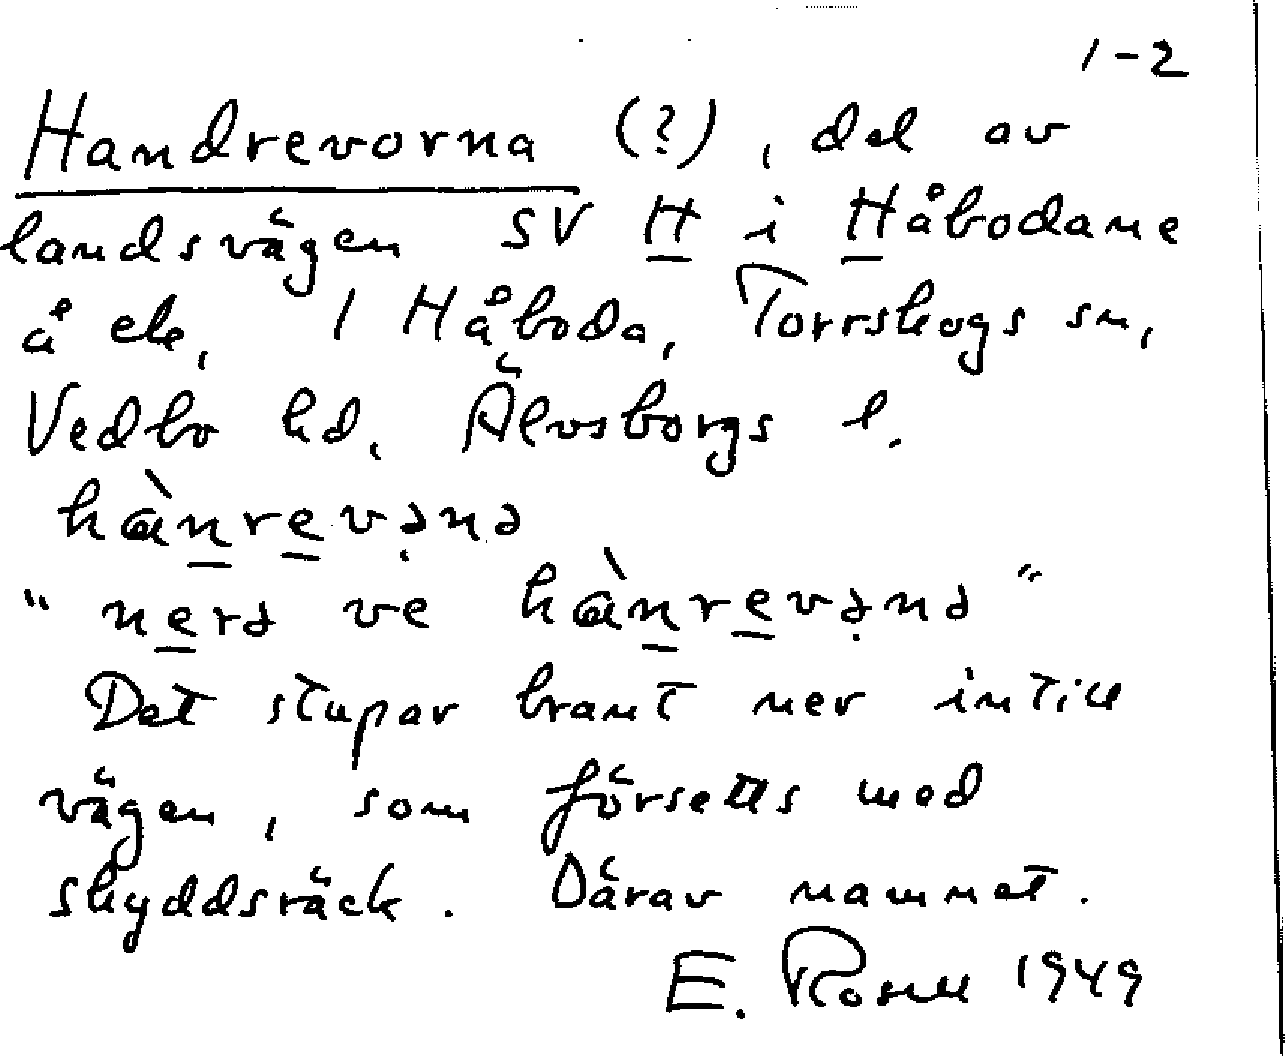 1-2
Handrevorna (?), del av
landsvägen SV H i Håbodane
å ek. 1 Håboda, Torrskogs sn,
Vedbo hd, Älvsborgs l.
hànrevəna
"nerə ve hànrevənə"
Det stupar brant ner intill
vägen, som försetts med
skyddsräck. Därav namnet.
E. Rosell 1949